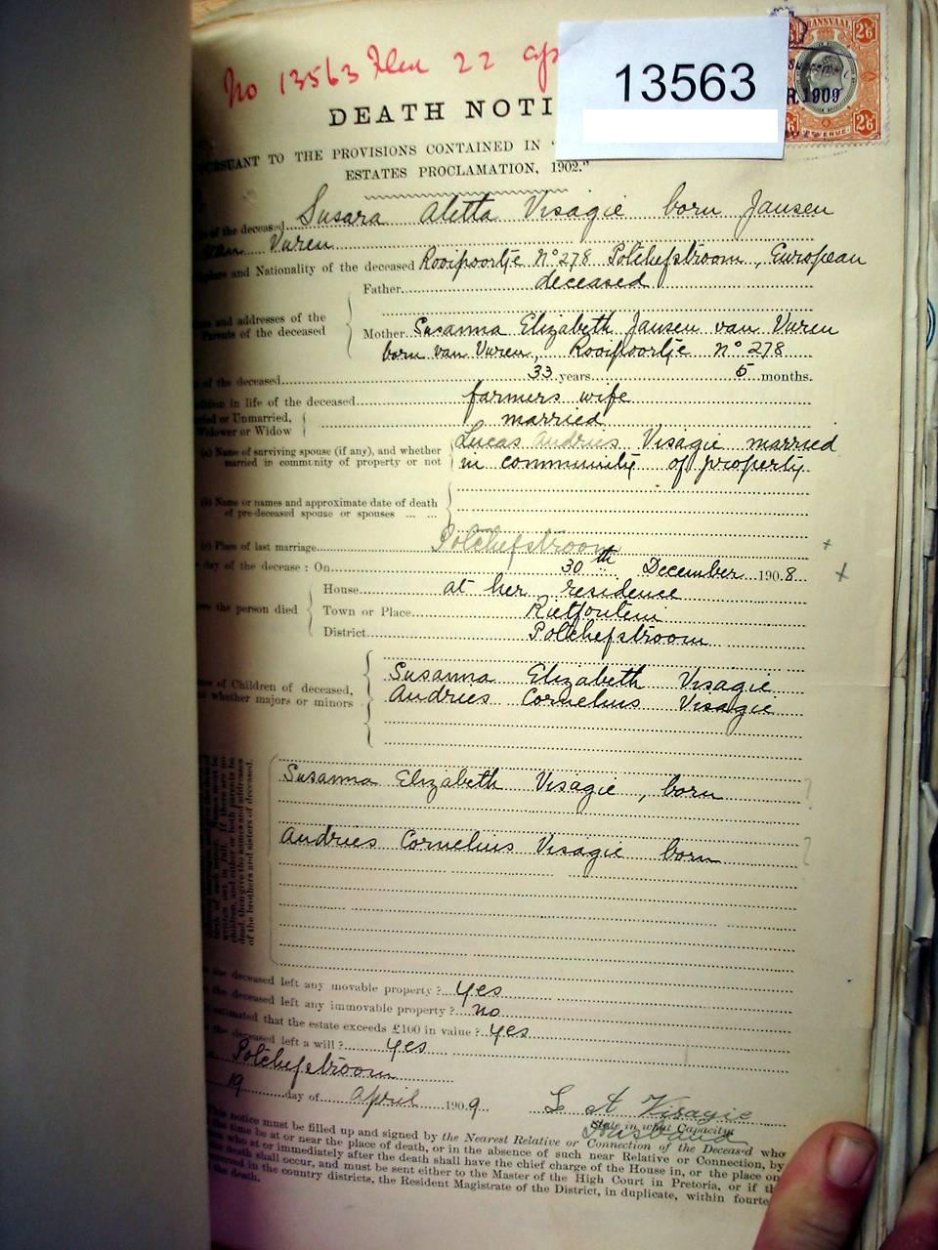 No 13563
22
13563
TRANSVAAL
2/6
R.1909
2/6
REVENUE
DEATH NOTI
PURSUANT TO THE PROVISIONS CONTAINED IN "
ESTATES PROCLAMATION, 1902."
of the deceased Susara Aletta Visagie born Jansen
van Vuren
and Nationality of the deceased Rooipoortje No 278 Potchefstroom, European
Father deceased
and addresses of the
Parents of the deceased
Mother Susanna Elizabeth Jansen van Vuren
born van Vuren, Rooipoortje No 278
of the deceased 33 years 5 months.
in life of the deceased farmers wife
or Unmarried,
Widower or Widow married
(a) Name of surviving spouse (if any), and whether
married in community of property or not
Lucas Andries Visagie married
in community of property
(b) Name or names and approximate date of death
of pre-deceased spouse or spouses ... ...
(c) Place of last marriage Potchefstroom
day of the decease : On 30th December 1908
House at her residence
the person died
Town or Place Rietfontein
District Potchefstroom
of Children of deceased,
whether majors or minors
Susanna Elizabeth Visagie
Andries Cornelius Visagie
Susanna Elizabeth Visagie, born ?
Andries Cornelius Visagie born ?
of the brothers and sisters of deceased.
the deceased left any movable property? yes
the deceased left any immovable property? no
estimated that the estate exceeds £100 in value? yes
the deceased left a will? yes
Potchefstroom
19 day of April 1909
L A Visagie
State in what Capacity
Husband
This notice must be filled up and signed by the Nearest Relative or Connection of the Deceased who
the time be at or near the place of death, or in the absence of such near Relative or Connection, by
who at or immediately after the death shall have the chief charge of the House in, or the place on
death shall occur, and must be sent either to the Master of the High Court in Pretoria, or if th
in the country districts, the Resident Magistrate of the District, in duplicate, within fourte
the death.